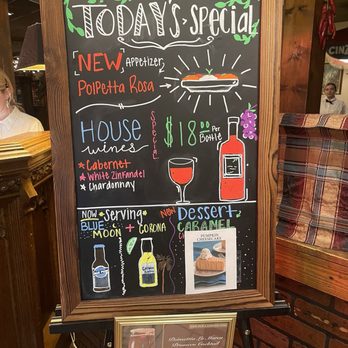 TODAY'S Special
NEW Appetizer
Polpetta Rosa
HOUSE
wines
Special
$18.00 Per
Bottle
Cabernet
White Zinfandel
Chardonnay
NOW Serving
BLUE
MOON + CORONA
NOW Dessert
CARAMEL
PUMPKIN
CHEESECAKE